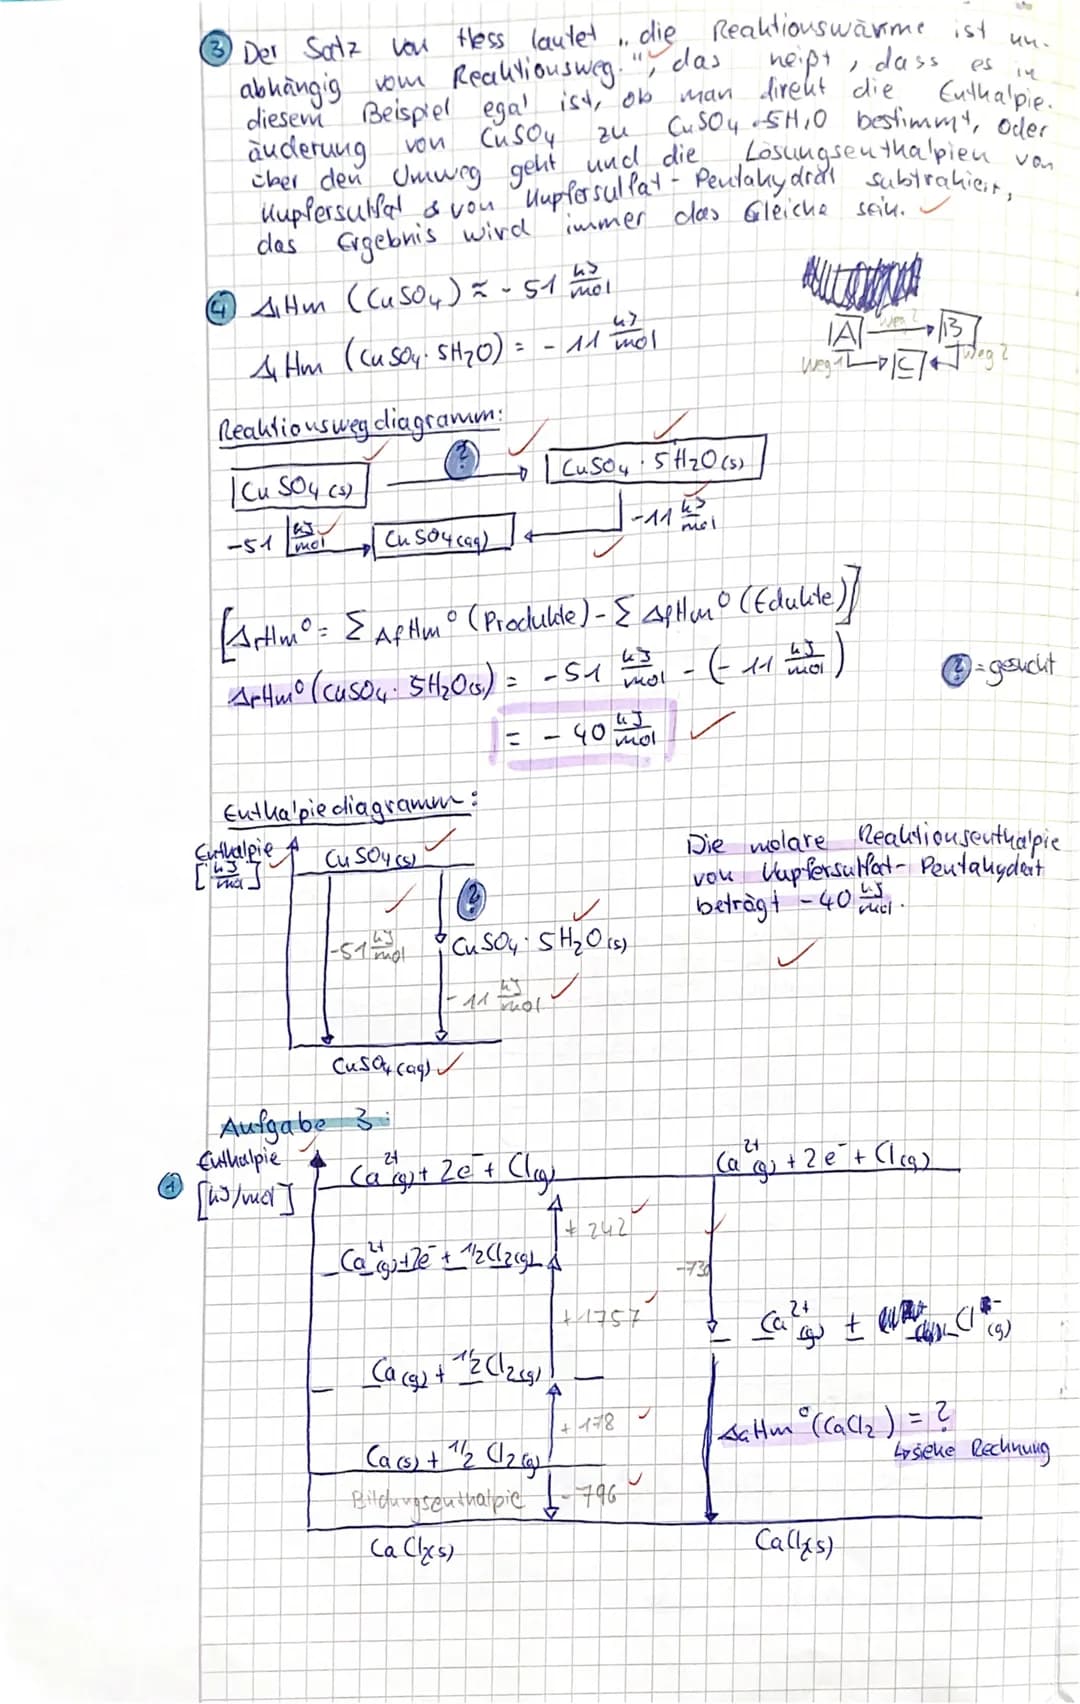 ③ Der Satz von Hess lautet „die Reaktionswärme ist un-
abhängig vom Reaktionsweg.", das heißt, dass es in
diesem Beispiel egal ist, ob man direkt die Enthalpie-
änderung von CuSO4 zu CuSO4·5H2O bestimmt, oder
über den Umweg geht und die Lösungsenthalpien von
Kupfersulfat & von Kupfersulfat-Pentahydrat subtrahiert,
das Ergebnis wird immer das Gleiche sein.
④ ΔHm (CuSO4) ≈ -51 kJ/mol
ΔHm (CuSO4·5H2O) = -11 kJ/mol
A Weg ? B
Weg 1 C Weg 2
Reaktionswegdiagramm:
CuSO4(s) ? CuSO4·5H2O(s)
-51 kJ/mol CuSO4(aq) -11 kJ/mol
[ΔrHm° = Σ ΔfHm° (Produkte) - Σ ΔfHm° (Edukte)]
ΔrHm° (CuSO4·5H2O(s)) = -51 kJ/mol - (-11 kJ/mol)
? = gesucht
= -40 kJ/mol
Enthalpiediagramm:
Enthalpie
[kJ/mol]
CuSO4(s)
?
-51 kJ/mol
CuSO4·5H2O(s)
-11 kJ/mol
CuSO4(aq)
Die molare Reaktionsenthalpie
von Kupfersulfat-Pentahydrat
beträgt -40 kJ/mol.
Aufgabe 3:
① Enthalpie
[kJ/mol]
Ca2+(g) + 2e- + Cl(g)
Ca2+(g) + 2e- + Cl(g)
+ 242
Ca2+(g) + 2e- + 1/2Cl2(g)
-730
+ 1757
Ca2+(g) + Cl-(g)
Ca(g) + 1/2Cl2(g)
+ 178
ΔGHm°(CaCl2) = ?
↳ siehe Rechnung
Ca(s) + 1/2 Cl2(g)
Bildungsenthalpie - 796
CaCl2(s)
CaCl2(s)